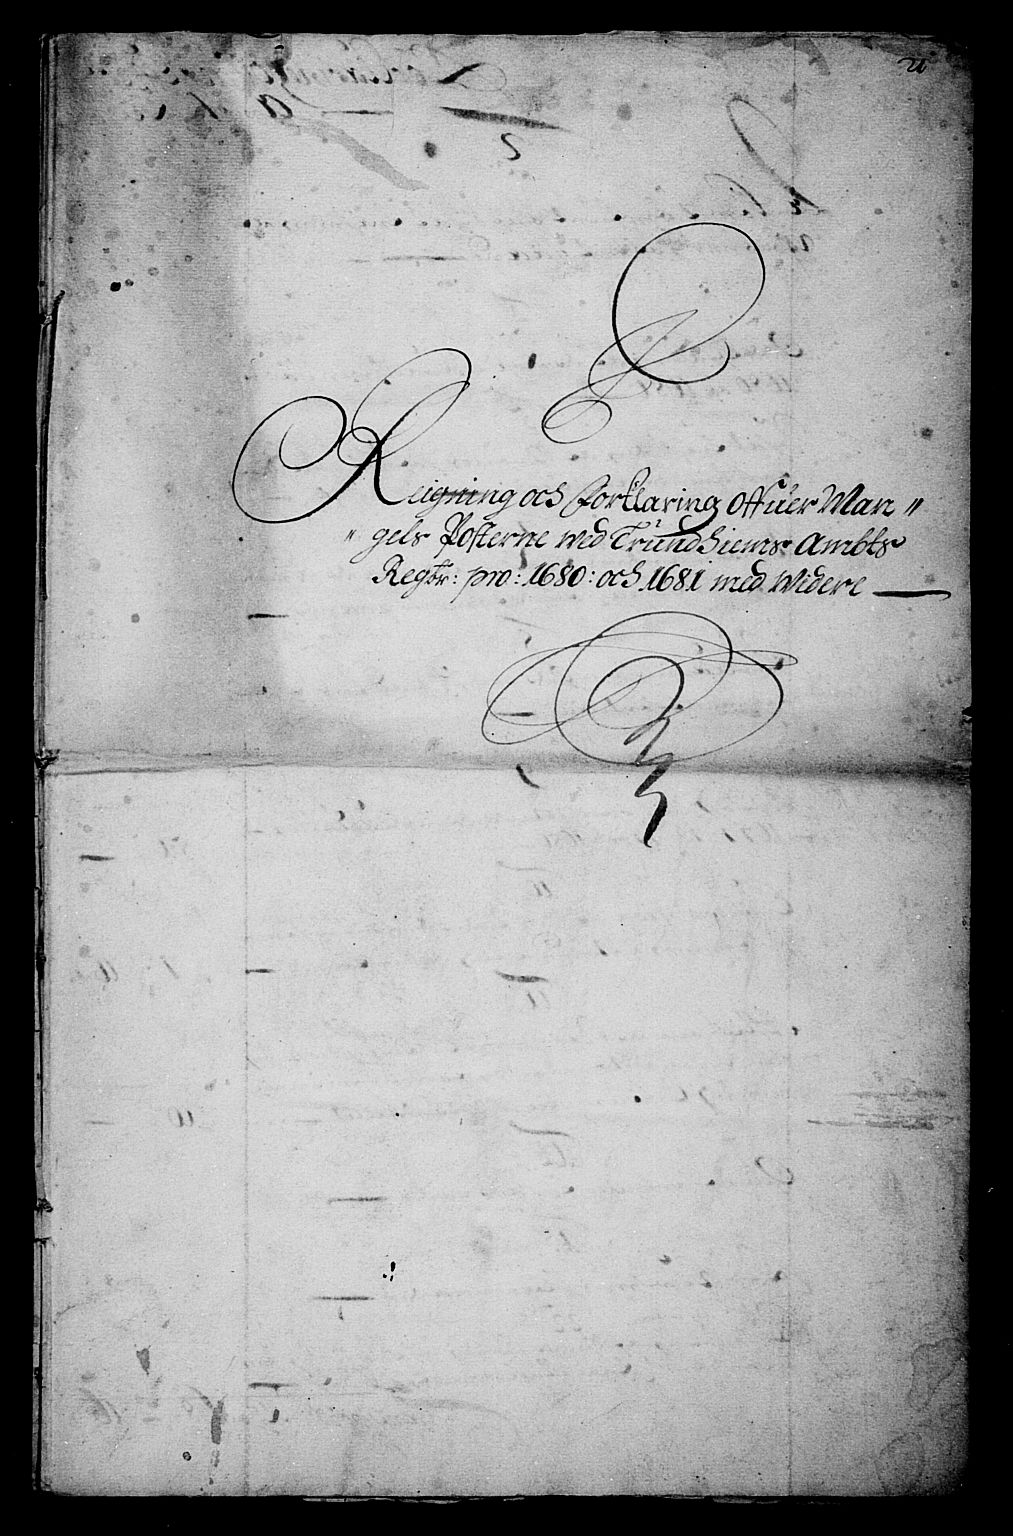 Reigning och Forklaring offuer Man〃
〃gels Posterne wed Trundhiems Ambts
Regbr: pro: 1680: och 1681 med widere